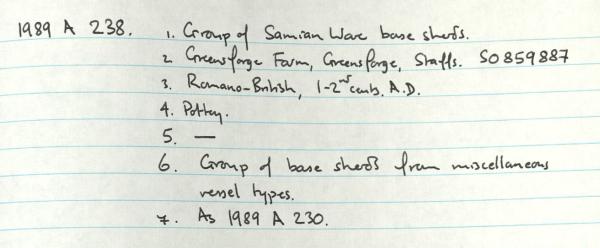 1989 A 238. 1. Group of Samian Ware base sherds.
2 Greensforge Farm, Greensforge, Staffs. SO859887
3. Romano-British, 1-2nd cents. A.D.
4. Pottery.
5. —
6. Group of base sherds from miscellaneous
vessel types.
7. As 1989 A 230.